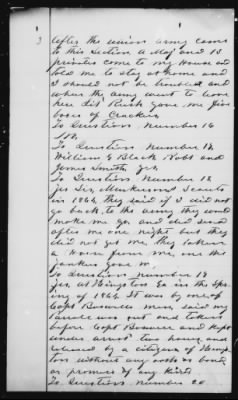 3
After the union army came
to this Section a Maj and 15
privates come to my house and
told me to stay at home and
I should not be troubled and
when the army went to leave
here Lit Rusk gave me five
boxes of Crackers
To Question Number 16
No.
To Question Number 17
William G Black Robt and
James Smith Yes
To Question Number 18
yes Sir, Scouts
in 1864, They said if I did not
go back to the army they would
make me go and did send
after me one night but they
did not get me, they taken
a horse from me, one the
yankees gave m
To Question number 19
yes, At Covington Ga in the Spr-
ing of 1864. It was by one of
Capt men, said my
parole was out and taken
before Capt and kept
under arrest two hours and
released by a citizen of
ton without any oath or bond
or promise of any kind
To Question number 20